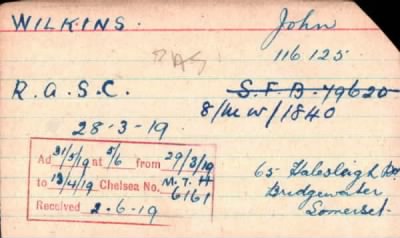 WILKINS. John
116125.
R.A.S.C. S.F.B. 79620
8/MW/1840
28-3-19.
Ad 31/5/19 at 5/6 from 29/3/19
to 13/4/19 Chelsea No. M.T.H
6161
Received 2-6-19
65 Halesleigh Rd
Bridgewater
Somerset.